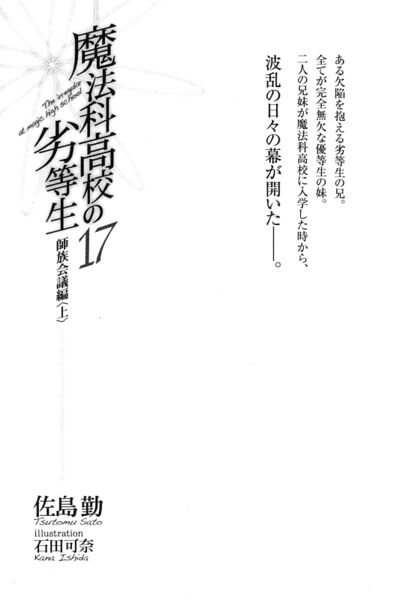 ある欠陥を抱える劣等生の兄。
全てが完全無欠な優等生の妹。
二人の兄妹が魔法科高校に入学した時から、
波乱の日々の幕が開いた――。
魔法科高校の
劣等生
The irregular
at magic high school
17
師族会議編〈上〉
佐島 勤
Tsutomu Sato
illustration
石田可奈
Kana Ishida